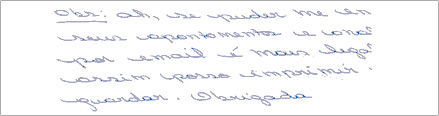 Obs: ah, se puder me en
seus apontamentos e ona
por email é mais lega
assim posso imprimir.
guardar. Obrigada